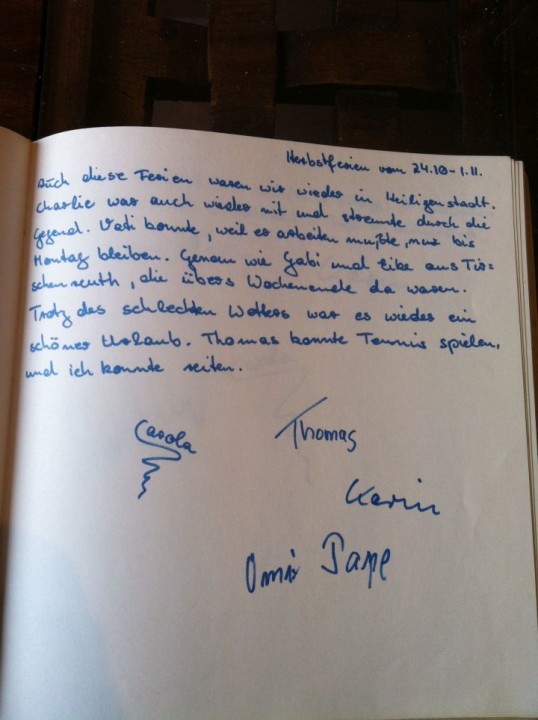 Herbstferien vom 24.10-1.11.
Auch diese Ferien waren wir wieder in Heiligenstadt.
Charlie war auch wieder mit und streunte durch die
Gegend. Vati konnte, weil er arbeiten mußte, nur bis
Montag bleiben. Genau wie Gabi und Eike aus Tir-
schenreuth, die übers Wochenende da waren.
Trotz des schlechten Wetters war es wieder ein
schöner Urlaub. Thomas konnte Tennis spielen,
und ich konnte reiten.
Carola
Thomas
Karin
Omi Pape